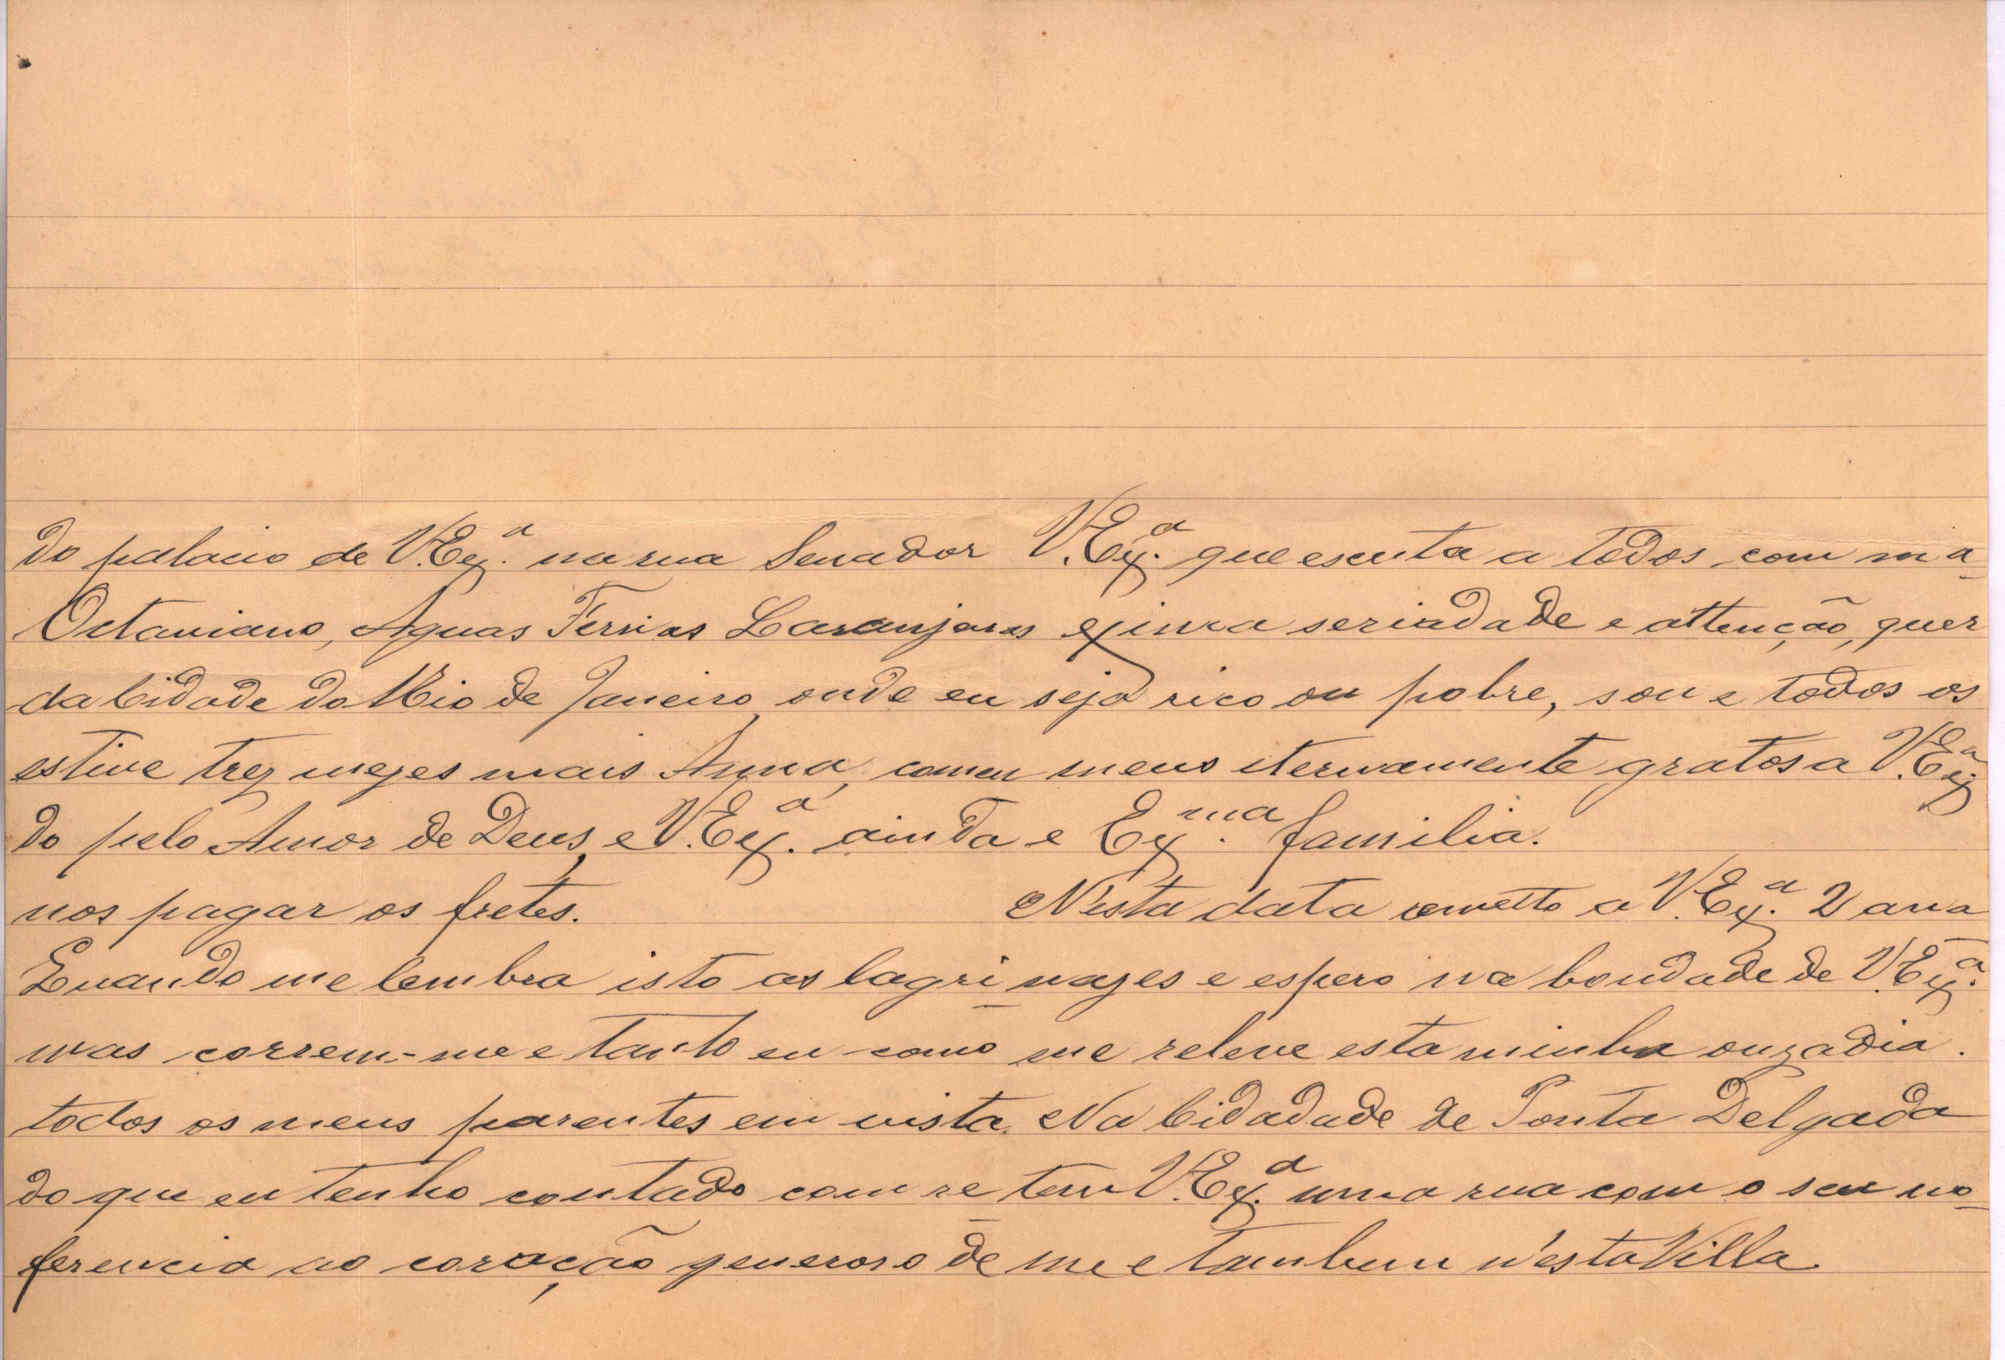 do palacio de V. Exª. na rua Senador
Octaviano, Aguas Ferrias Laranjaras
da Cidade do Rio de Janeiro, onde eu
estive trez mezes mais Anna, comen
do pelo Amor de Deus, e V. Exª. ainda
nos pagar os fretes.
Quando me lembra isto as lagri
mas correm-me e tanto eu como
todos os meus parentes em vista
do que eu tenho contado com re
ferencia ao coração generoso de
V. Exª. que escuta a todos com ma-
xima seriadade e attenção, quer
seja rico ou pobre, sou e todos os
meus iternamente gratos a V. Exª.
e Exma. familia.
Nesta data remetto a V. Exª. 2 ana
nazes e espero na bondade de V. Exª.
me releve esta minha ouzadia.
Na Cidadade de Ponta Delgada
tem V. Exª. uma rua com o seu no-
me e tambem n'esta Villa.